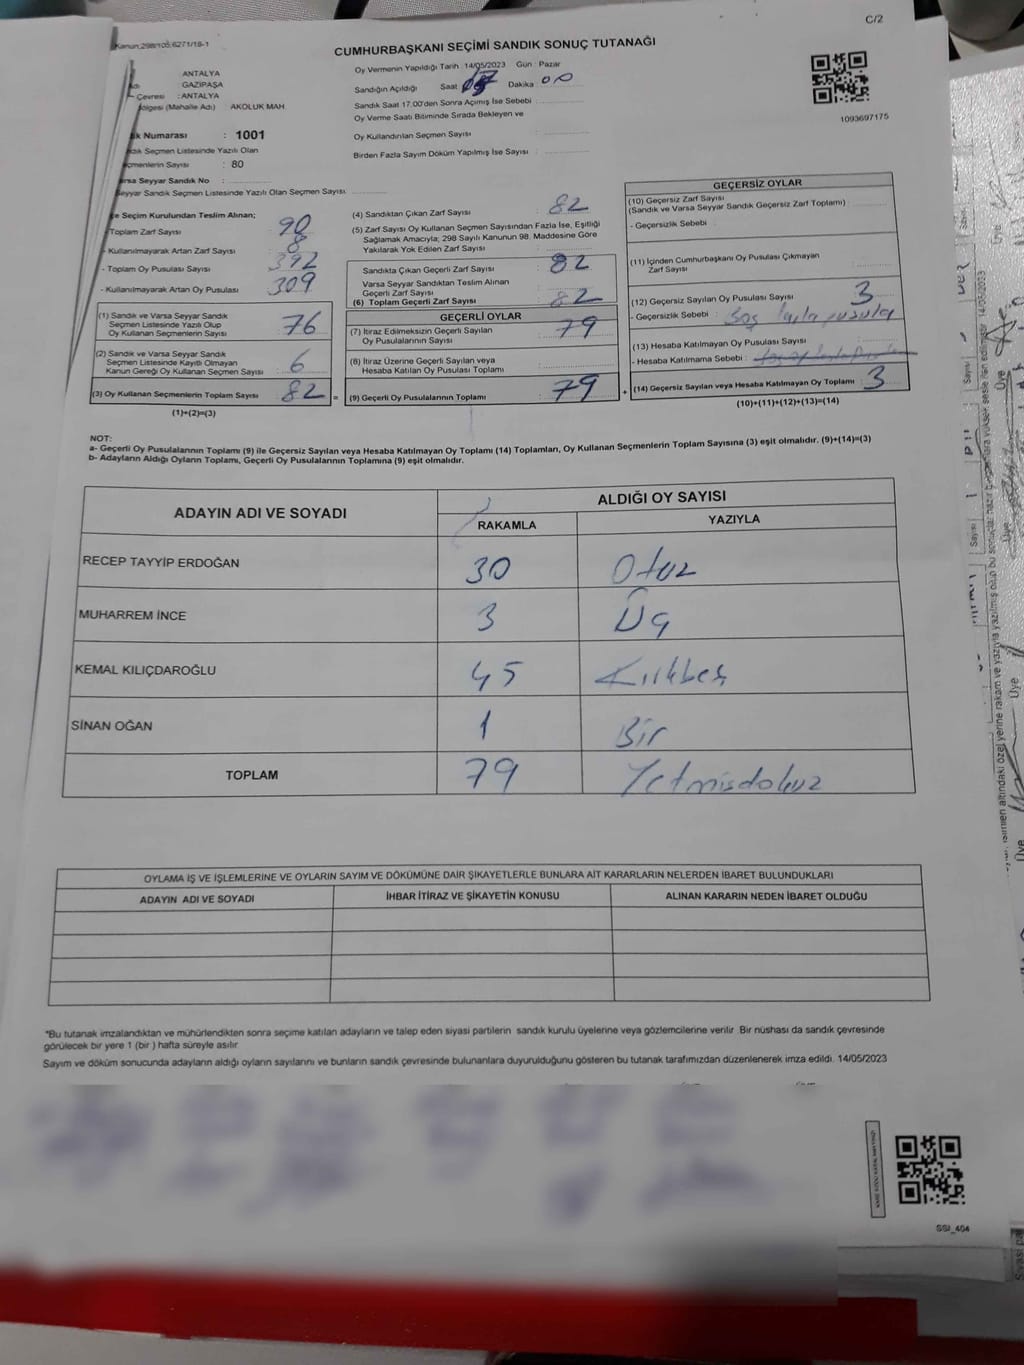 C/2
Kanun;298/105;6271/18-1
CUMHURBAŞKANI SEÇİMİ SANDIK SONUÇ TUTANAĞI
ANTALYA
GAZİPAŞA
Çevresi : ANTALYA
ölgesi (Mahalle Adı) AKOLUK MAH.
ık Numarası : 1001
Seçmen Listesinde Yazılı Olan
çmenlerin Sayısı : 80
arsa Seyyar Sandık No :
Seyyar Sandık Seçmen Listesinde Yazılı Olan Seçmen Sayısı
Oy Vermenin Yapıldığı Tarih : 14/05/2023 Gün : Pazar
Sandığın Açıldığı Saat Dakika 00
Sandık Saat 17.00'den Sonra Açılmış İse Sebebi
Oy Verme Saati Bitiminde Sırada Bekleyen ve
Oy Kullandırılan Seçmen Sayısı :
Birden Fazla Sayım Döküm Yapılmış İse Sayısı :
1093697175
e Seçim Kurulundan Teslim Alınan;
Toplam Zarf Sayısı 90
- Kullanılmayarak Artan Zarf Sayısı 8
- Toplam Oy Pusulası Sayısı 392
- Kullanılmayarak Artan Oy Pusulası 309
(1) Sandık ve Varsa Seyyar Sandık
Seçmen Listesinde Yazılı Olup
Oy Kullanan Seçmenlerin Sayısı 76
(2) Sandık ve Varsa Seyyar Sandık
Seçmen Listesinde Kayıtlı Olmayan
Kanun Gereği Oy Kullanan Seçmen Sayısı 6
(3) Oy Kullanan Seçmenlerin Toplam Sayısı 82 =
(1)+(2)=(3)
(4) Sandıktan Çıkan Zarf Sayısı 82
(5) Zarf Sayısı Oy Kullanan Seçmen Sayısından Fazla İse, Eşitliği
Sağlamak Amacıyla; 298 Sayılı Kanunun 98. Maddesine Göre
Yakılarak Yok Edilen Zarf Sayısı
Sandıkta Çıkan Geçerli Zarf Sayısı 82
Varsa Seyyar Sandıktan Teslim Alınan
Geçerli Zarf Sayısı
(6) Toplam Geçerli Zarf Sayısı 82
GEÇERLİ OYLAR
(7) İtiraz Edilmeksizin Geçerli Sayılan
Oy Pusulalarının Sayısı 79
(8) İtiraz Üzerine Geçerli Sayılan veya
Hesaba Katılan Oy Pusulası Toplamı
(9) Geçerli Oy Pusulalarının Toplamı 79 +
GEÇERSİZ OYLAR
(10) Geçersiz Zarf Sayısı
(Sandık ve Varsa Seyyar Sandık Geçersiz Zarf Toplamı)
- Geçersizlik Sebebi :
(11) İçinden Cumhurbaşkanı Oy Pusulası Çıkmayan
Zarf Sayısı
(12) Geçersiz Sayılan Oy Pusulası Sayısı 3
- Geçersizlik Sebebi : Boş
(13) Hesaba Katılmayan Oy Pusulası Sayısı
- Hesaba Katılmama Sebebi :
(14) Geçersiz Sayılan veya Hesaba Katılmayan Oy Toplamı 3
(10)+(11)+(12)+(13)=(14)
NOT:
a- Geçerli Oy Pusulalarının Toplamı (9) ile Geçersiz Sayılan veya Hesaba Katılmayan Oy Toplamı (14) Toplamları, Oy Kullanan Seçmenlerin Toplam Sayısına (3) eşit olmalıdır. (9)+(14)=(3)
b- Adayların Aldığı Oyların Toplamı, Geçerli Oy Pusulalarının Toplamına (9) eşit olmalıdır.
ADAYIN ADI VE SOYADI ALDIĞI OY SAYISI
RAKAMLA YAZIYLA
RECEP TAYYİP ERDOĞAN 30 Otuz
MUHARREM İNCE 3 Üç
KEMAL KILIÇDAROĞLU 45 Kırkbeş
SİNAN OĞAN 1 Bir
TOPLAM 79 Yetmişdokuz
OYLAMA İŞ VE İŞLEMLERİNE VE OYLARIN SAYIM VE DÖKÜMÜNE DAİR ŞİKAYETLERLE BUNLARA AİT KARARLARIN NELERDEN İBARET BULUNDUKLARI
ADAYIN ADI VE SOYADI İHBAR İTİRAZ VE ŞİKAYETİN KONUSU ALINAN KARARIN NEDEN İBARET OLDUĞU
*Bu tutanak imzalandıktan ve mühürlendikten sonra seçime katılan adayların ve talep eden siyasi partilerin sandık kurulu üyelerine veya gözlemcilerine verilir. Bir nüshası da sandık çevresinde
görülecek bir yere 1 (bir ) hafta süreyle asılır.
Sayım ve döküm sonucunda adayların aldığı oyların sayılarını ve bunların sandık çevresinde bulunanlara duyurulduğunu gösteren bu tutanak tarafımızdan düzenlenerek imza edildi. 14/05/2023
SSI_404